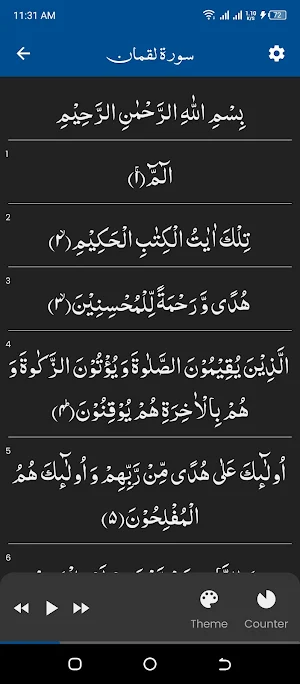 11:31 AM
1.10 K/s
72
سورة لقمان
بِسْمِ اللّٰهِ الرَّحْمٰنِ الرَّحِيْمِ
1
الٓمّٓ ﴿١﴾
2
تِلْكَ اٰيٰتُ الْكِتٰبِ الْحَكِيْمِ ﴿٢﴾
3
هُدًى وَّرَحْمَةً لِّلْمُحْسِنِيْنَ ﴿٣﴾
4
الَّذِيْنَ يُقِيْمُوْنَ الصَّلٰوةَ وَيُؤْتُوْنَ الزَّكٰوةَ وَ
هُمْ بِالْاٰخِرَةِ هُمْ يُوْقِنُوْنَ ﴿۴﴾
5
اُولٰٓئِكَ عَلٰى هُدًى مِّنْ رَّبِّهِمْ وَاُولٰٓئِكَ هُمُ
الْمُفْلِحُوْنَ ﴿۵﴾
6
Theme
Counter